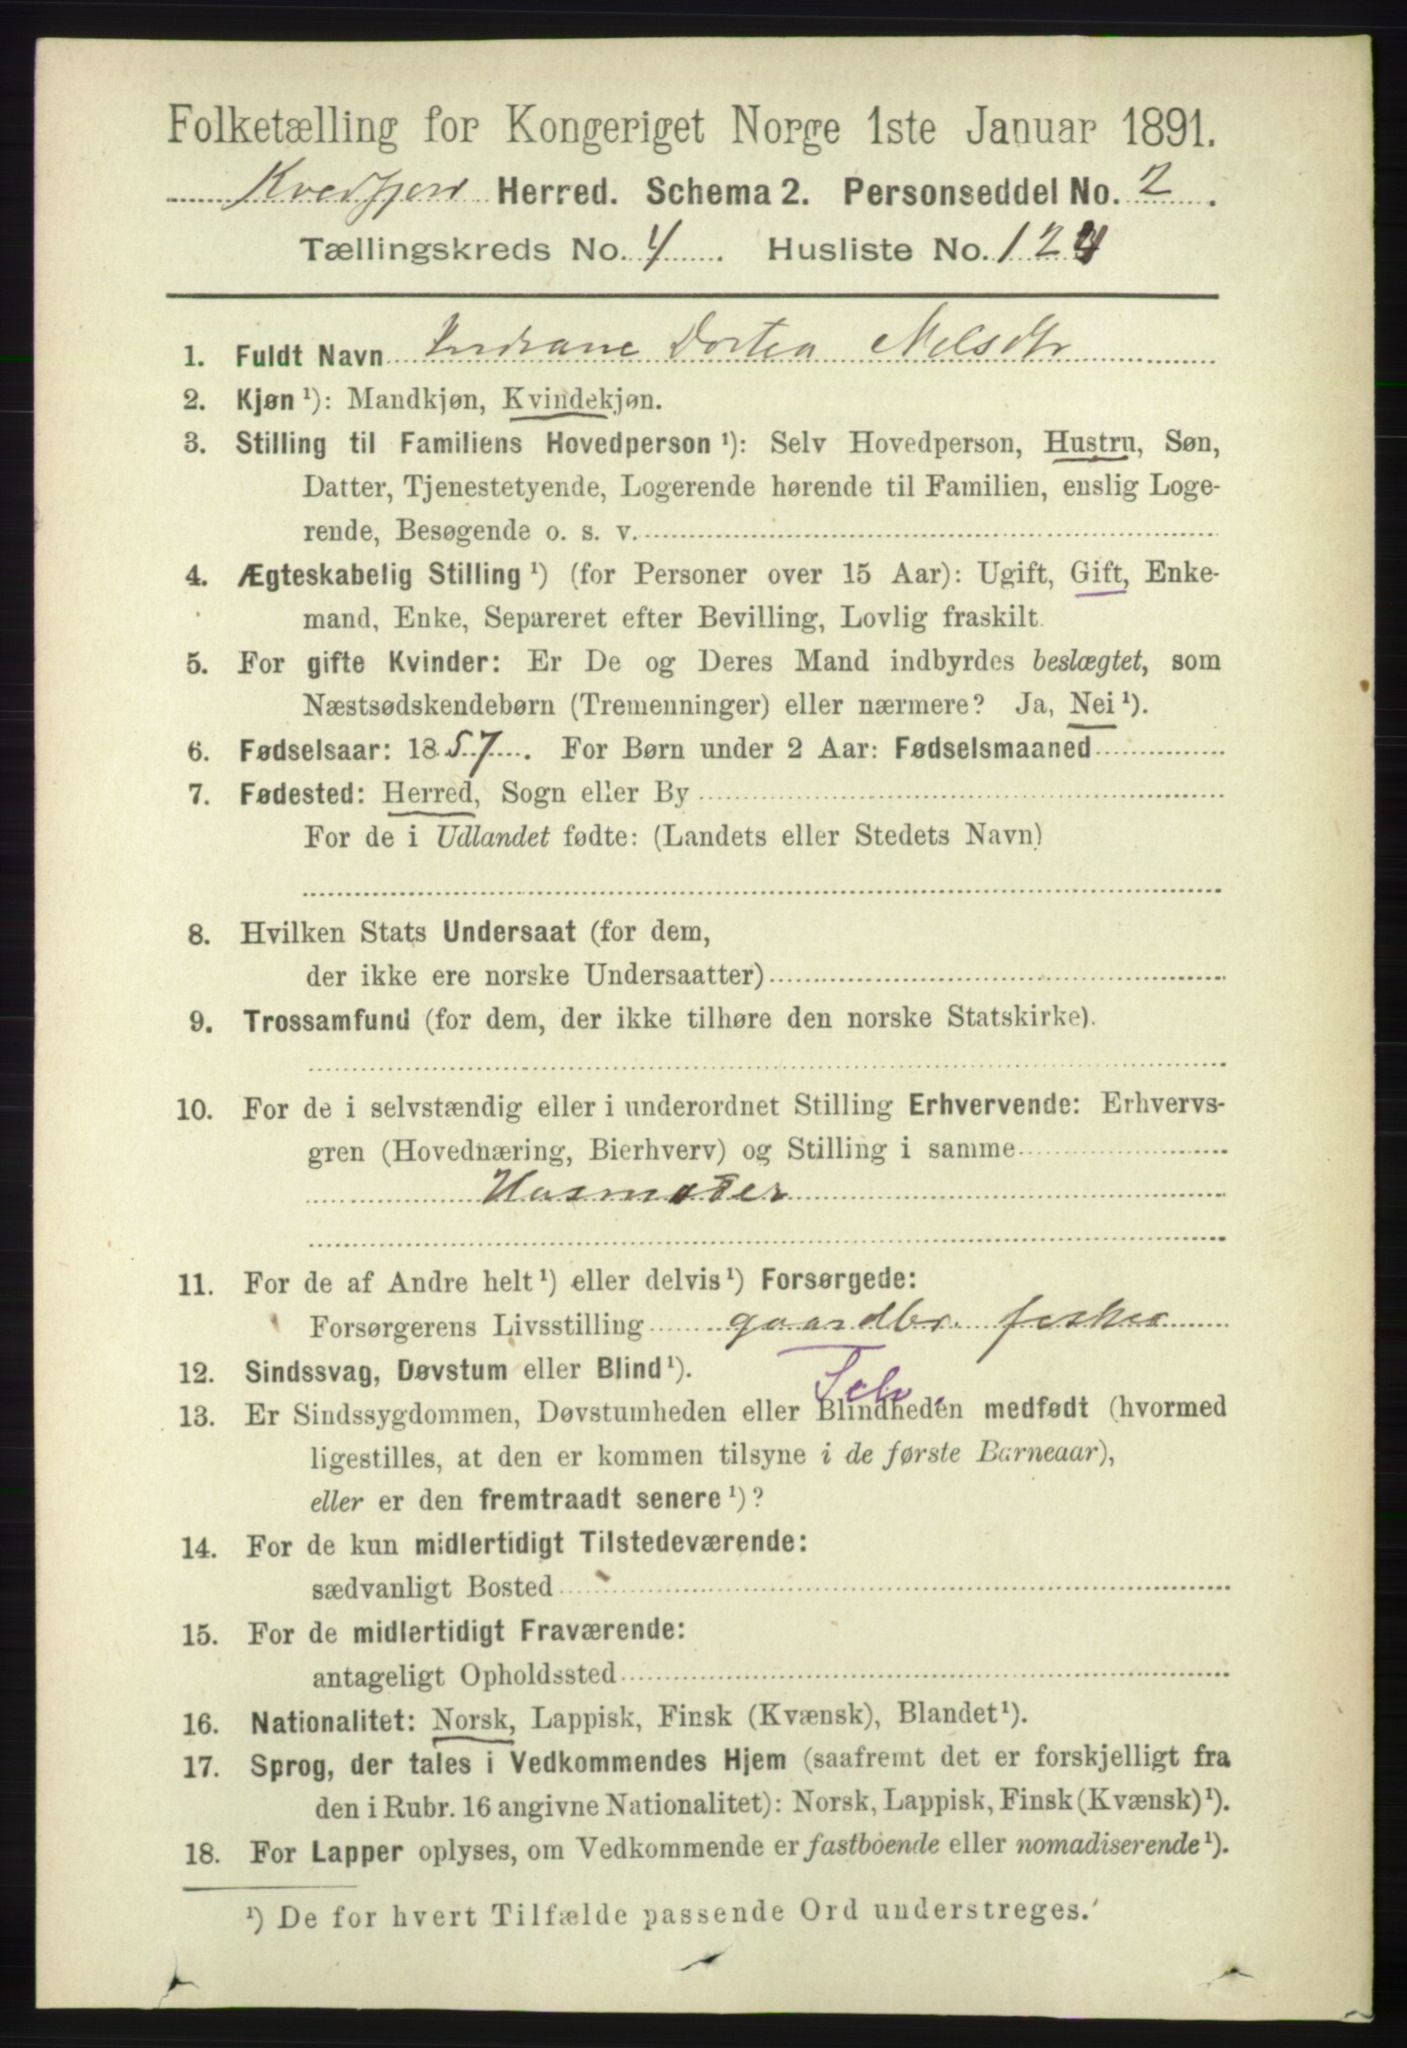 Folketælling for Kongeriget Norge 1ste Januar 1891.
Kvedfjord Herred. Schema 2. Personseddel No. 2.
Tællingskreds No. 4. Husliste No. 124
1. Fuldt Navn Dortea Nelsdtr
2. Kjøn ¹): Mandkjøn, Kvindekjøn.
3. Stilling til Familiens Hovedperson ¹): Selv Hovedperson, Hustru, Søn,
Datter, Tjenestetyende, Logerende hørende til Familien, enslig Loge-
rende, Besøgende o. s. v.
4. Ægteskabelig Stilling ¹) (for Personer over 15 Aar): Ugift, Gift, Enke-
mand, Enke, Separeret efter Bevilling, Lovlig fraskilt.
5. For gifte Kvinder: Er De og Deres Mand indbyrdes beslægtet, som
Næstsødskendebørn (Tremenninger) eller nærmere? Ja, Nei ¹).
6. Fødselsaar: 1857. For Børn under 2 Aar: Fødselsmaaned
7. Fødested: Herred, Sogn eller By
For de i Udlandet fødte: (Landets eller Stedets Navn)
8. Hvilken Stats Undersaat (for dem,
der ikke ere norske Undersaatter)
9. Trossamfund (for dem, der ikke tilhøre den norske Statskirke).
10. For de i selvstændig eller i underordnet Stilling Erhvervende: Erhvervs-
gren (Hovednæring, Bierhverv) og Stilling i samme
Husmoder
11. For de af Andre helt ¹) eller delvis ¹) Forsørgede:
Forsørgerens Livsstilling gaardbr. fisker
12. Sindssvag, Døvstum eller Blind ¹).
13. Er Sindssygdommen, Døvstumheden eller Blindheden medfødt (hvormed
ligestilles, at den er kommen tilsyne i de første Barneaar),
eller er den fremtraadt senere ¹)?
14. For de kun midlertidigt Tilstedeværende:
sædvanligt Bosted
15. For de midlertidigt Fraværende:
antageligt Opholdssted
16. Nationalitet: Norsk, Lappisk, Finsk (Kvænsk), Blandet ¹).
17. Sprog, der tales i Vedkommendes Hjem (saafremt det er forskjelligt fra
den i Rubr. 16 angivne Nationalitet): Norsk, Lappisk, Finsk (Kvænsk) ¹).
18. For Lapper oplyses, om Vedkommende er fastboende eller nomadiserende ¹).
¹) De for hvert Tilfælde passende Ord understreges.